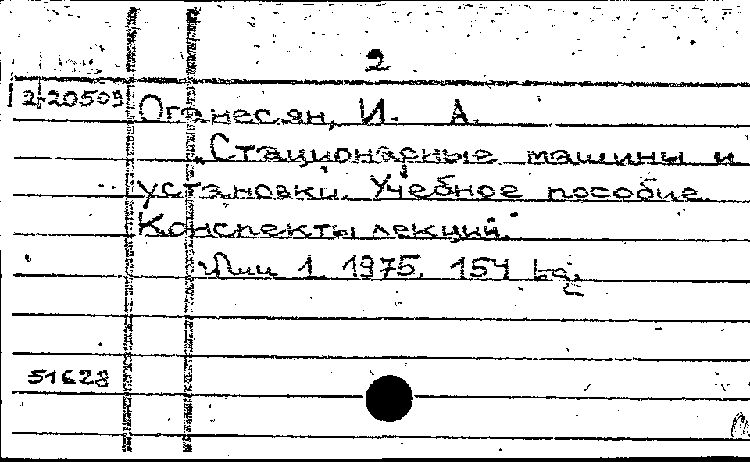 2
2-20509 Оганесян, И. А.
„Стационарные машины и
установки. Учебное пособие.
Конспекты лекций."
Մաս 1. 1975. 154 էջ.
51628